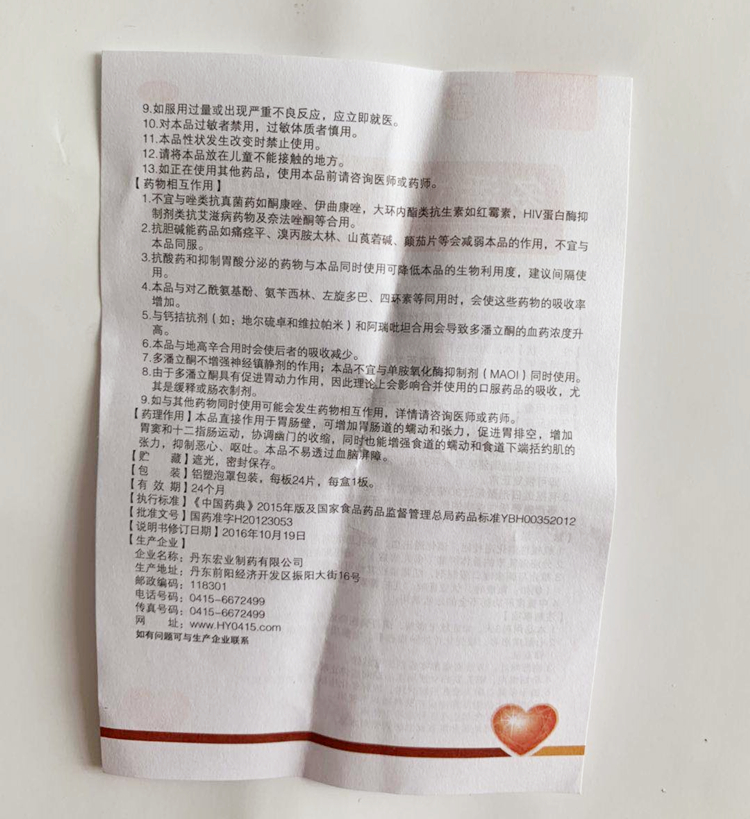 9.如服用过量或出现严重不良反应，应立即就医。
10.对本品过敏者禁用，过敏体质者慎用。
11.本品性状发生改变时禁止使用。
12.请将本品放在儿童不能接触的地方。
13.如正在使用其他药品，使用本品前请咨询医师或药师。
【药物相互作用】
1.不宜与唑类抗真菌药如酮康唑、伊曲康唑，大环内酯类抗生素如红霉素，HIV蛋白酶抑
制剂类抗艾滋病药物及奈法唑酮等合用。
2.抗胆碱能药品如痛痉平、溴丙胺太林、山莨菪碱、颠茄片等会减弱本品的作用，不宜与
本品同服。
3.抗酸药和抑制胃酸分泌的药物与本品同时使用可降低本品的生物利用度，建议间隔使
用。
4.本品与对乙酰氨基酚、氨苄西林、左旋多巴、四环素等同用时，会使这些药物的吸收率
增加。
5.与钙拮抗剂（如：地尔硫卓和维拉帕米）和阿瑞吡坦合用会导致多潘立酮的血药浓度升
高。
6.本品与地高辛合用时会使后者的吸收减少。
7.多潘立酮不增强神经镇静剂的作用；本品不宜与单胺氧化酶抑制剂（MAOI）同时使用。
8.由于多潘立酮具有促进胃动力作用，因此理论上会影响合并使用的口服药品的吸收，尤
其是缓释或肠衣制剂。
9.如与其他药物同时使用可能会发生药物相互作用，详情请咨询医师或药师。
【药理作用】本品直接作用于胃肠壁，可增加胃肠道的蠕动和张力，促进胃排空，增加
胃窦和十二指肠运动，协调幽门的收缩，同时也能增强食道的蠕动和食道下端括约肌的
张力，抑制恶心、呕吐。本品不易透过血脑屏障。
【贮 藏】遮光，密封保存。
【包 装】铝塑泡罩包装，每板24片，每盒1板。
【有 效 期】24个月
【执行标准】《中国药典》2015年版及国家食品药品监督管理总局药品标准YBH00352012
【批准文号】国药准字H20123053
【说明书修订日期】2016年10月19日
【生产企业】
企业名称：丹东宏业制药有限公司
生产地址：丹东前阳经济开发区振阳大街16号
邮政编码：118301
电话号码：0415-6672499
传真号码：0415-6672499
网 址：www.HY0415.com
如有问题可与生产企业联系